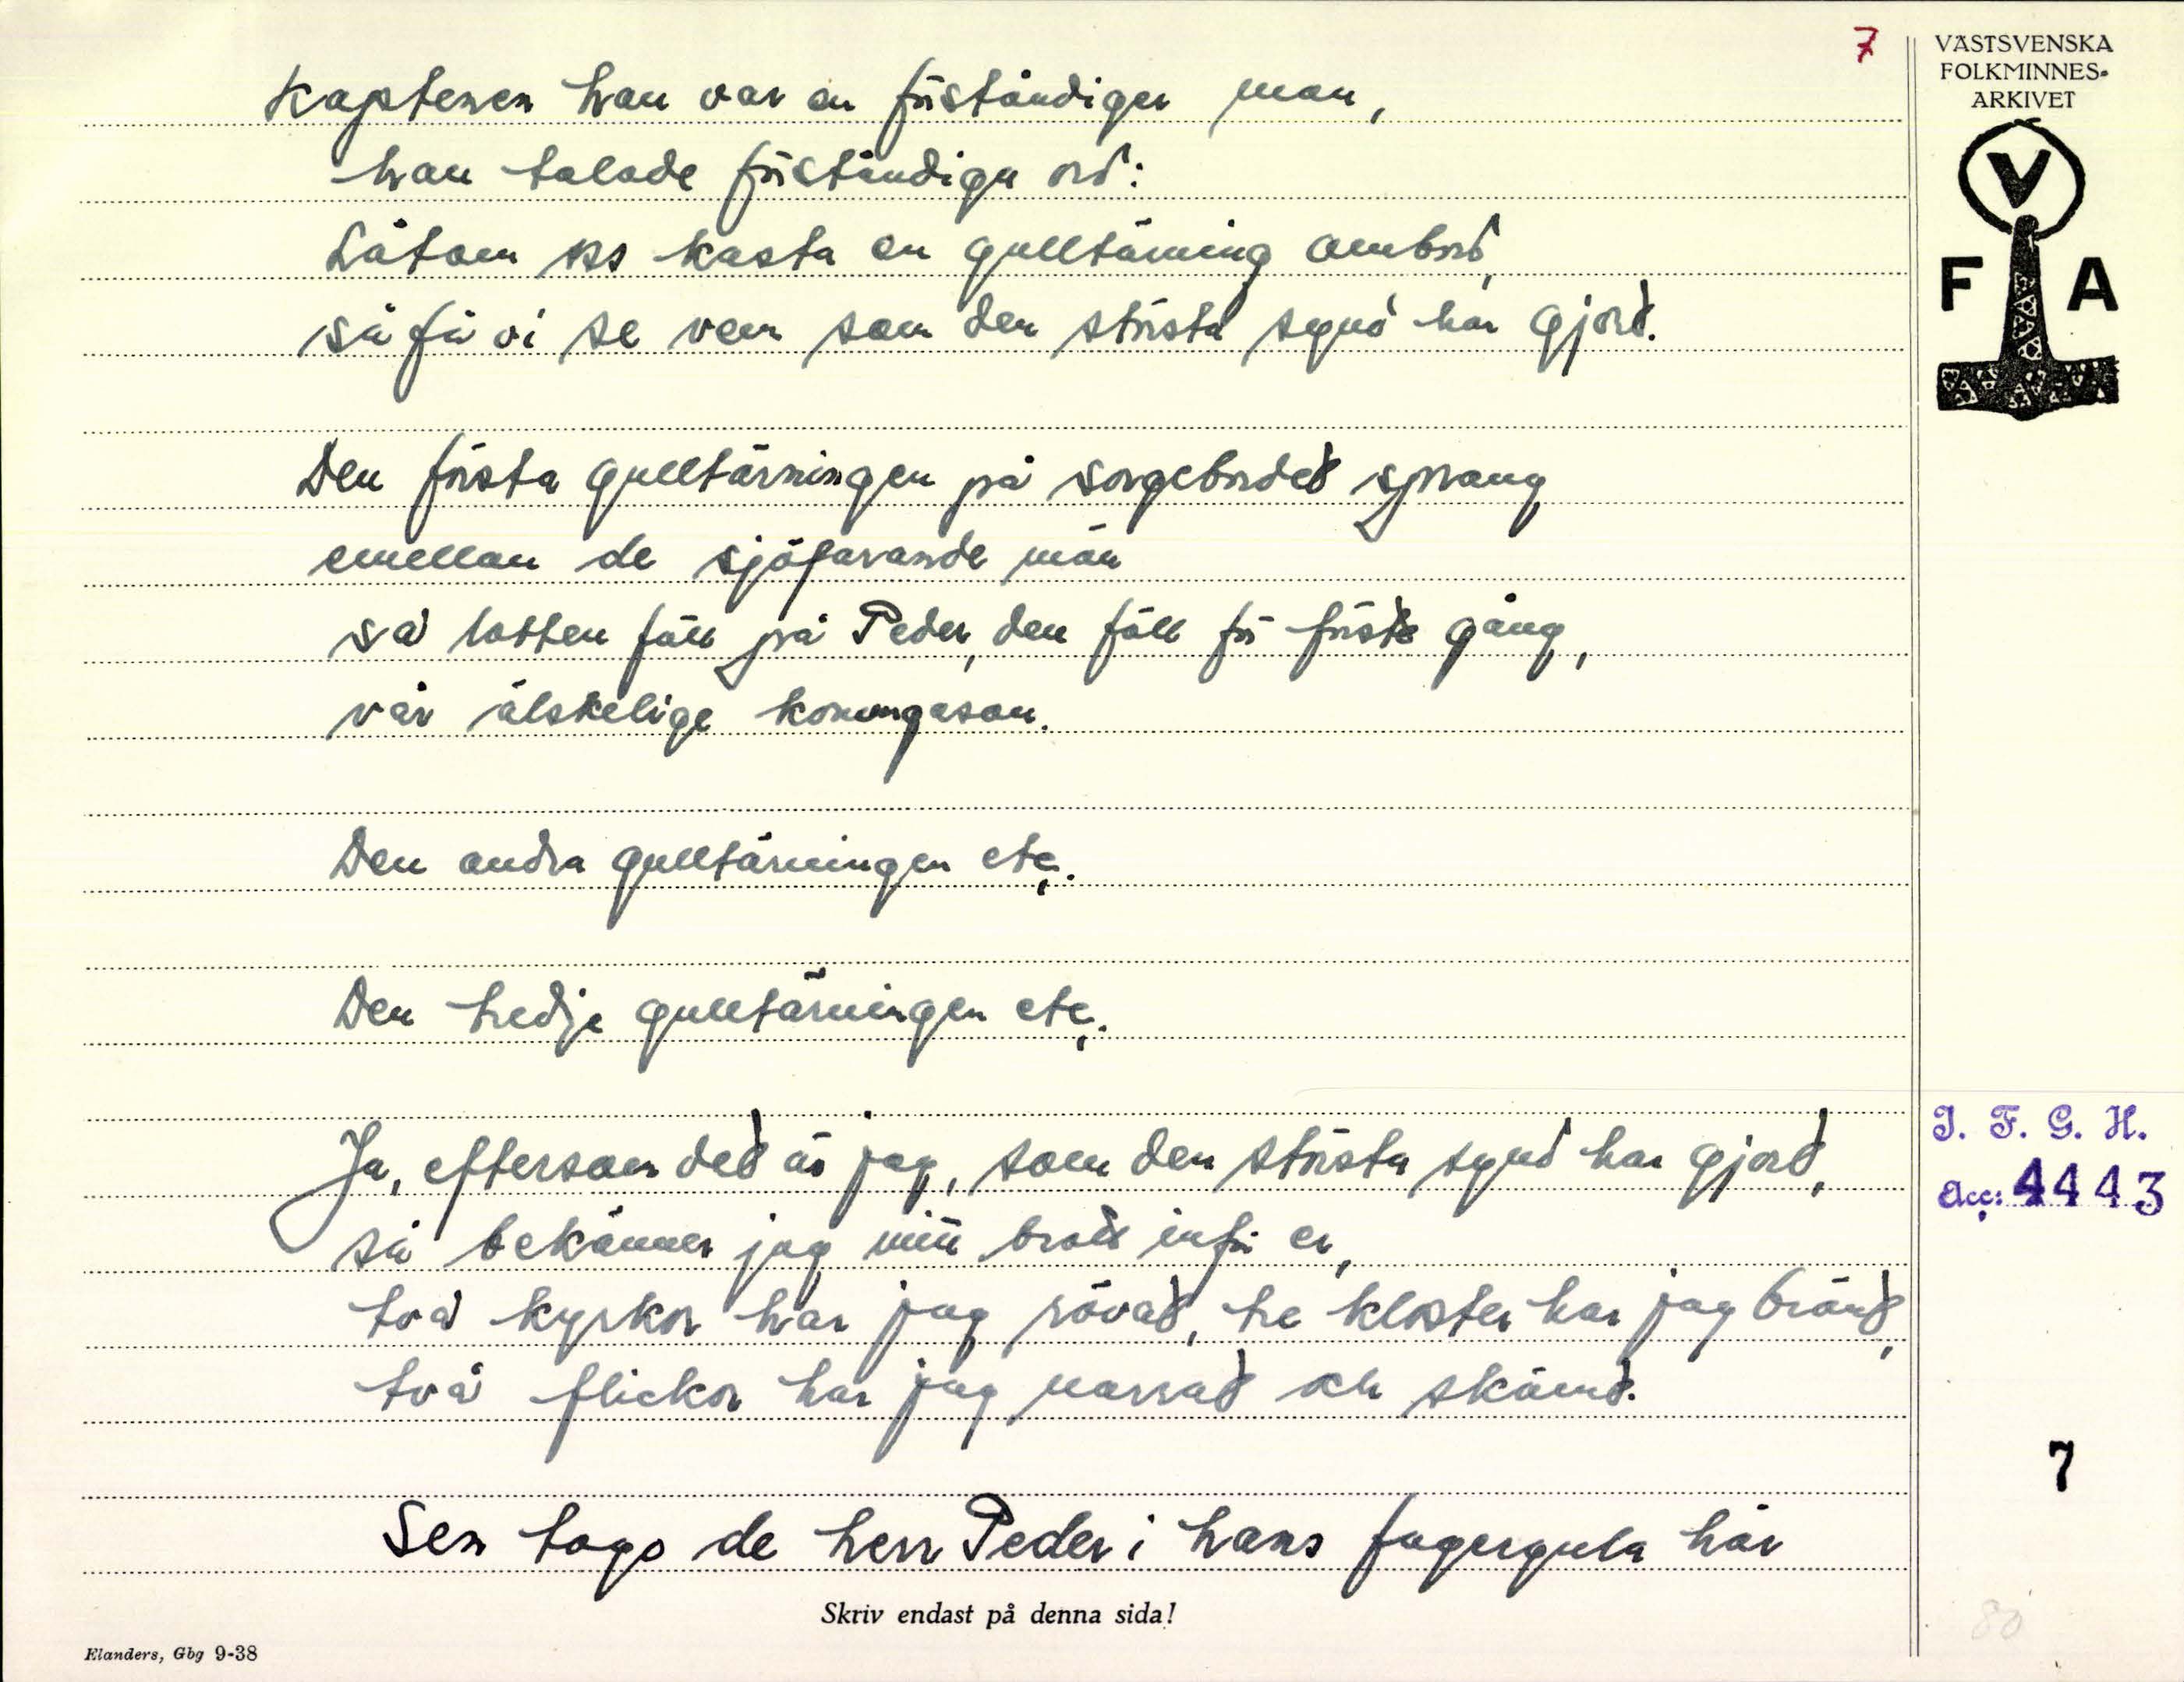 7
VÄSTSVENSKA
FOLKMINNES-
ARKIVET
V
F A
Kaptenen han var en förståndiger man,
han talade förståndiga ord:
Låtom oss kasta en gulltärning ombord,
så få vi se vem som den största synd har gjord.
Den första gulltärningen på sorgebordet sprang
emellan de sjöfarande män
så lotten föll på Peder, den föll för första gång,
vår älskelige konungason.
Den andra gulltärningen etc.
Den tredje gulltärningen etc.
Ja, eftersom det är jag, som den största synd har gjord,
så bekänner jag min brott inför er,
två kyrkor har jag rövat, tre kloster har jag bränt,
två flickor har jag narrat och skämt.
Sen togo de herr Peder i hans fagergula hår
I. F. G. H.
Acc: 4443
7
80
Skriv endast på denna sida!
Elanders, Gbg 9-38